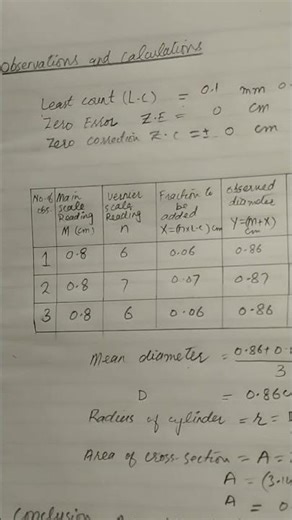 Observations and calculations
Least count (L.C) = 0.1 mm 0.
Zero Error Z.E = 0 cm
Zero correction Z.C = ± 0 cm
No. of obs. Main scale Reading M (cm) Vernier scale Reading n Fraction to be added X=(n×L.C) cm observed diameter Y=(M+X) cm
1 0.8 6 0.06 0.86
2 0.8 7 0.07 0.87
3 0.8 6 0.06 0.86
Mean diameter = 0.86+0.
3
D = 0.86c
Radius of cylinder = r =
Area of cross-section = A =
A = (3.14
A = 0
Conclusion